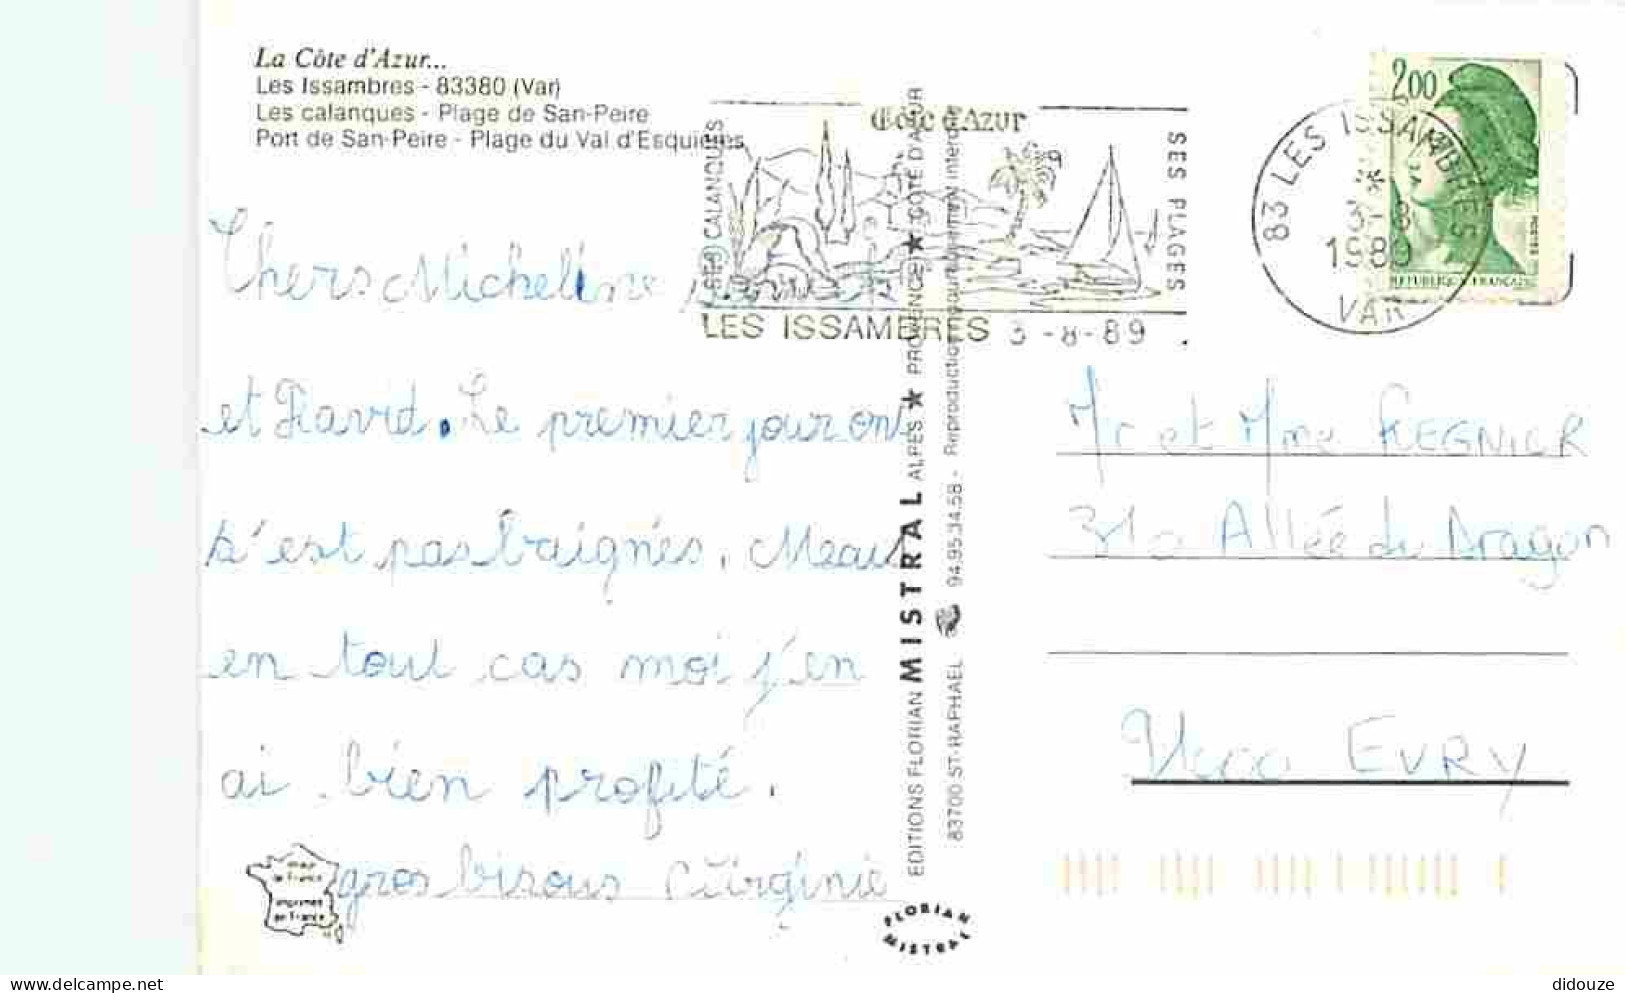 La Côte d'Azur...
Les Issambres - 83380 (Var)
Les calanques - Plage de San-Peire
Port de San-Peire - Plage du Val d'Esquières
Côte d'Azur
SES CALANQUES
SES PLAGES
LES ISSAMBRES 3 -8-89
2,00
REPUBLIQUE FRANÇAISE
83 LES ISSAMBRES
3-8
1989
VAR
Chers Micheline
et David. Le premier jour on
s'est pas baignés. Mais
en tout cas moi j'en
ai bien profité.
gros bisous Virginie
EDITIONS FLORIAN MISTRAL ALPES ★ PROVENCE ★ COTE D'AZUR
83700 ST-RAPHAEL 94.95.34.58 - Reproduction même interdite
Mr et Mme REGNIER
310 Allée du Dragon
EVRY
imprimés
en France
FLORIAN
MISTRAL
didouze